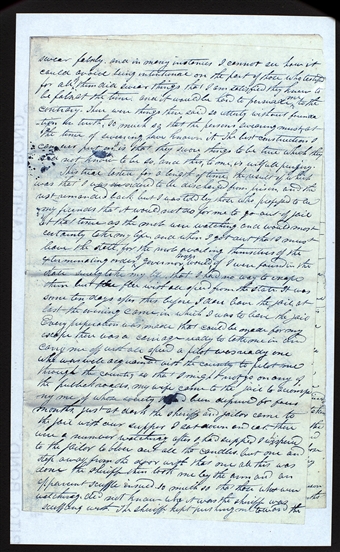 swear falsely, and in many instances I cannot see how it
could avoid being intentional on the part of those who testified
for all them did swear things that I am satisfied they knew to
be false at the time and it would be hard to persuade me to the
contrary. There were things there said so utterly without founda-
tion in truth so much so that the persons swearing must at
the time of swearing have known it. The best construction I
can ever put on it is that they swore things to be true which they
did not know to be so, and this, to me, is wilful perjury
This trial lasted for a length of time, the result of which
was that I was ordered to be discharged from prison and the
rest remanded back but I was told by those who professed to be
my friends that it would not do for me to go out of jail
at that time as the mob were watching and would most
certainly take my life and when I got out that I must
leave the state for the mob availing themselves of the
exterminating order of governor Boggs would if I were found in the
state surely take my life that I had no way to escape
them but to flee with all speed from the state It was
some ten days after this before I dare leave the jail at
last the evening came in which I was to leave the jail
Every preparation was made that could be made for my
escape there was a carriage ready to take me in and
carry me off with all speed a pilot was ready one
who was well acquainted with the country to pilot me
through the country so that I might not go on any of
the public roads, my wife came to the jail to accompany
me of whose society I had been deprived for four
months just at dark the sheriff and jailor came to
the jail with our supper I sat down and eat there
were a number watching after I had supped I whispered
to the jailor to blow out all the candles but one and
step away from the door with that one all this was
done the sheriff then took me by the arm and an
apparent scuffle ensued so much so that those who were
watching did not know who it was the sheriff was
scuffling with The sheriff kept pushing me toward the